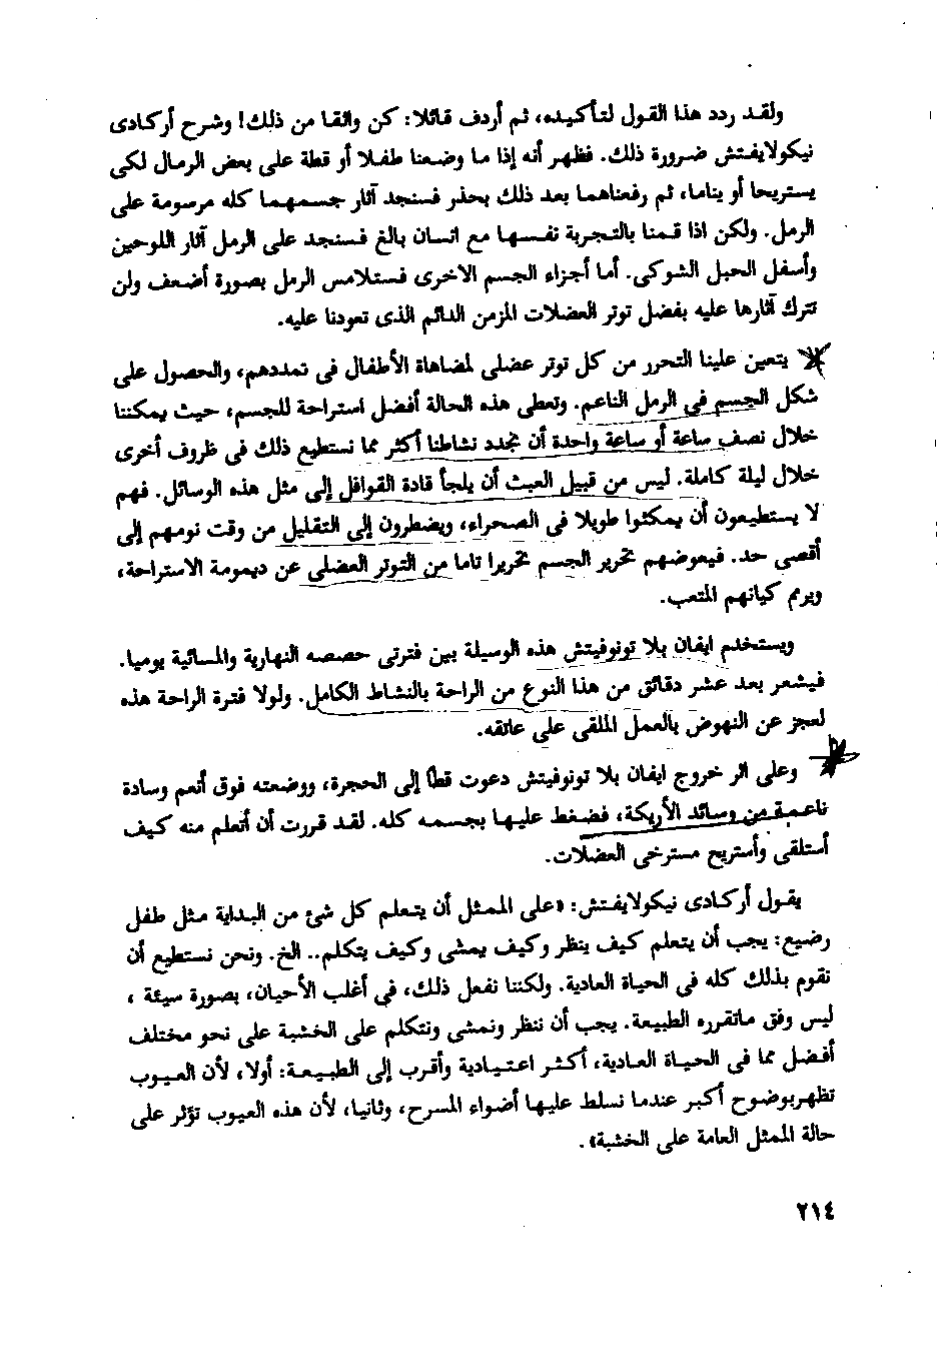 ولقد ردد هذا القول لتأكيده، ثم أردف قائلا: كن واثقا من ذلك! وشرح أركادى
نيكولايفتش ضرورة ذلك. فظهر أنه إذا ما وضعنا طفلا أو قطة على بعض الرمال لكى
يستريحا أو يناما، ثم رفعناهما بعد ذلك بحذر فسنجد آثار جسمهما كله مرسومة على
الرمل. ولكن اذا قمنا بالتجربة نفسها مع انسان بالغ فسنجد على الرمل آثار اللوحين
وأسفل الحبل الشوكى. أما أجزاء الجسم الاخرى فستلامس الرمل بصورة أضعف ولن
تترك آثارها عليه بفضل توتر العضلات المزمن الدائم الذى تعودنا عليه.
يتعين علينا التحرر من كل توتر عضلى لمضاهاة الأطفال فى تمددهم، والحصول على
شكل الجسم فى الرمل الناعم. وتعطى هذه الحالة أفضل استراحة للجسم، حيث يمكننا
خلال نصف ساعة أو ساعة واحدة أن نجدد نشاطنا أكثر مما نستطيع ذلك فى ظروف أخرى
خلال ليلة كاملة. ليس من قبيل العبث أن يلجأ قادة القوافل إلى مثل هذه الوسائل. فهم
لا يستطيعون أن يمكثوا طويلا فى الصحراء، ويضطرون إلى التقليل من وقت نومهم إلى
أقصى حد. فيعوضهم تحرير الجسم تحريرا تاما من التوتر العضلى عن ديمومة الاستراحة،
ويرمم كيانهم المتعب.
ويستخدم ايفان بلا تونوفيتش هذه الوسيلة بين فترتى حصصه النهارية والمسائية يوميا.
فيشعر بعد عشر دقائق من هذا النوع من الراحة بالنشاط الكامل. ولولا فترة الراحة هذه
لعجز عن النهوض بالعمل الملقى على عاتقه.
وعلى اثر خروج ايفان بلا تونوفيتش دعوت قطاً إلى الحجرة، ووضعته فوق أنعم وسادة
ناعمة من وسائد الأريكة، فضغط عليها بجسمه كله. لقد قررت أن أتعلم منه كيف
أستلقى وأستريح مسترخى العضلات.
يقول أركادى نيكولايفتش: «على الممثل أن يتعلم كل شئ من البداية مثل طفل
رضيع: يجب أن يتعلم كيف ينظر وكيف يمشى وكيف يتكلم.. الخ. ونحن نستطيع أن
نقوم بذلك كله فى الحياة العادية. ولكننا نفعل ذلك، فى أغلب الأحيان، بصورة سيئة ،
ليس وفق ماتقرره الطبيعة. يجب أن ننظر ونمشى ونتكلم على الخشبة على نحو مختلف
أفضل مما فى الحياة العادية، أكثر اعتيادية وأقرب إلى الطبيعة: أولا، لأن العيوب
تظهربوضوح أكبر عندما نسلط عليها أضواء المسرح، وثانيا، لأن هذه العيوب تؤثر على
حالة الممثل العامة على الخشبة» .
٢١٤